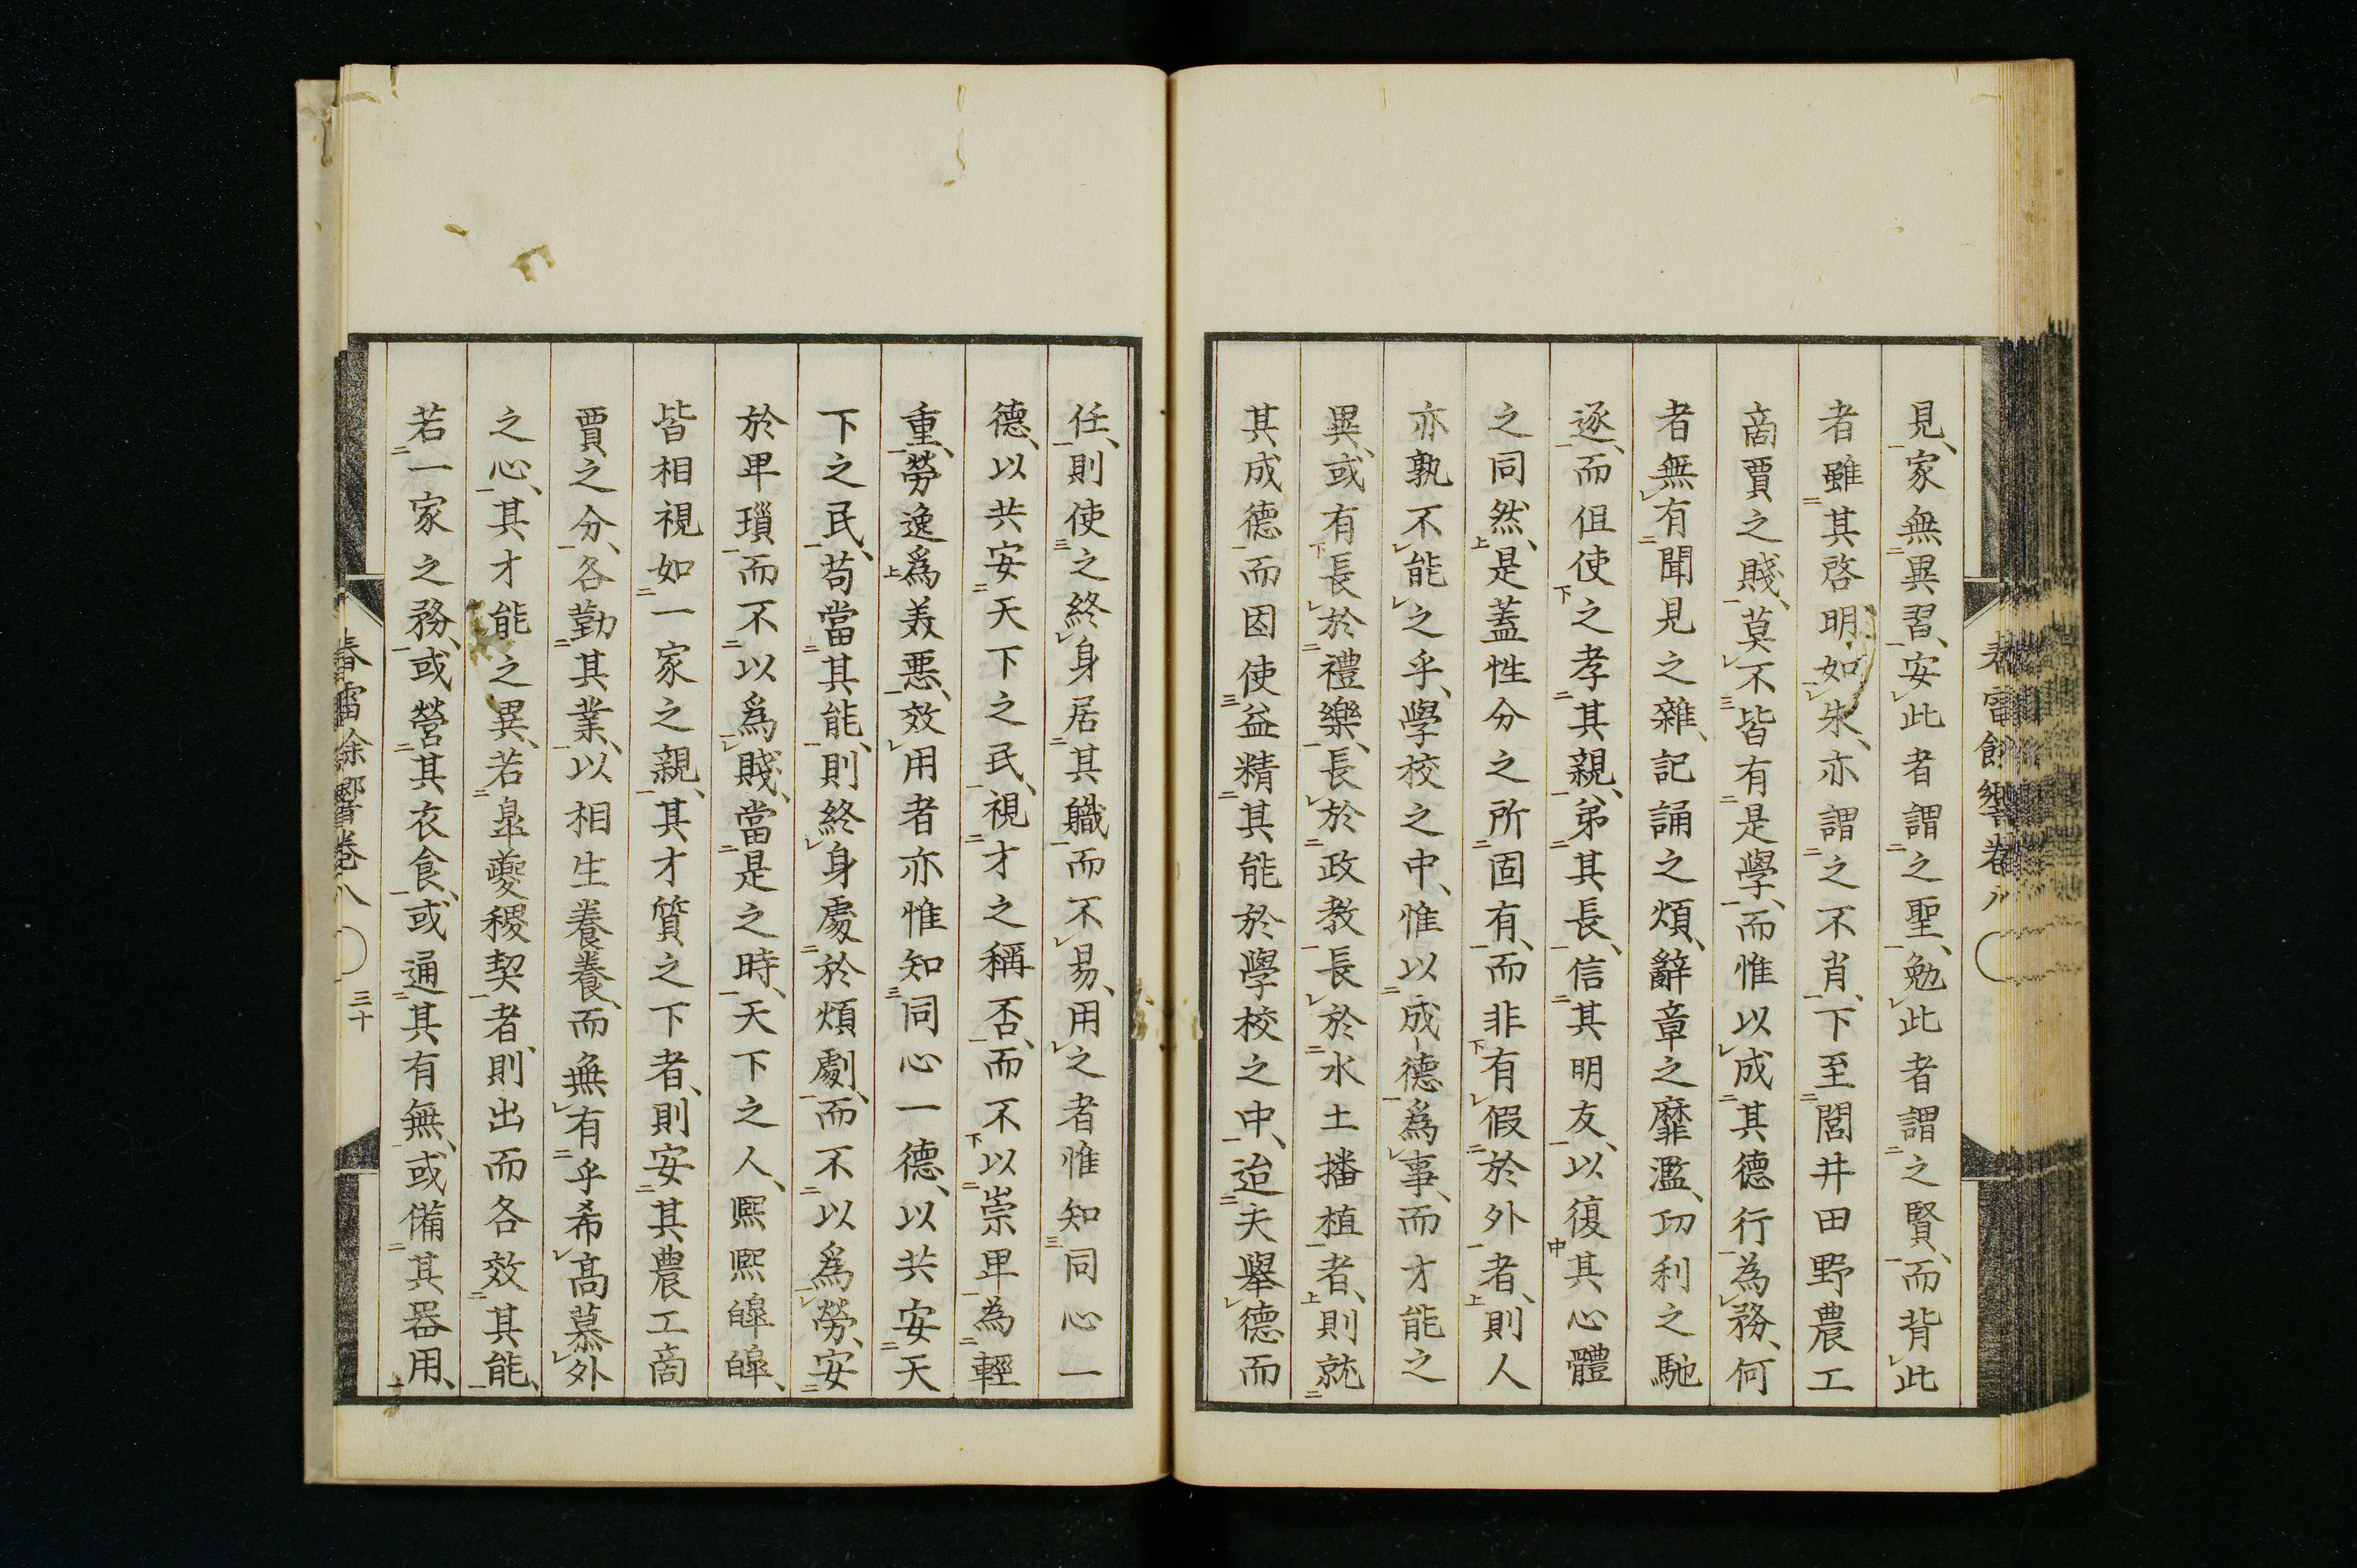 見、家無異習、安此者謂之聖、勉此者謂之賢、而背此
者雖其啓明、如朱、亦謂之不肖、下至閭井田野農工
商賈之賤、莫不皆有是學、而惟以成其德行為務、何
者無有聞見之雜、記誦之煩、辭章之靡濫、功利之馳
逐、而但使之孝其親、弟其長、信其明友、以復其心體
之同然、是蓋性分之所固有、而非有假於外者、則人
亦孰不能之乎、學校之中、惟以成德爲事、而才能之
異、或有長於禮樂、長於政教長於水土播植者、則就
其成德而因使益精其能於學校之中、迨夫舉德而
任、則使之終身居其職而不易、用之者惟知同心一
德、以共安天下之民、視才之稱否、而不以崇卑為輕
重、勞逸爲美惡、效用者亦惟知同心一德、以共安天
下之民、苟當其能、則終身處於煩劇、而不以爲勞、安
於卑瑣而不以爲賤、當是之時、天下之人、熙熙皥皥、
皆相視如一家之親、其才質之下者、則安其農工商
賈之分、各勤其業、以相生養養、而無有乎希高慕外
之心、其才能之異、若皐夔稷契者、則出而各效其能、
若一家之務、或營其衣食、或通其有無、或備其器用、
春雷余響卷八 三十